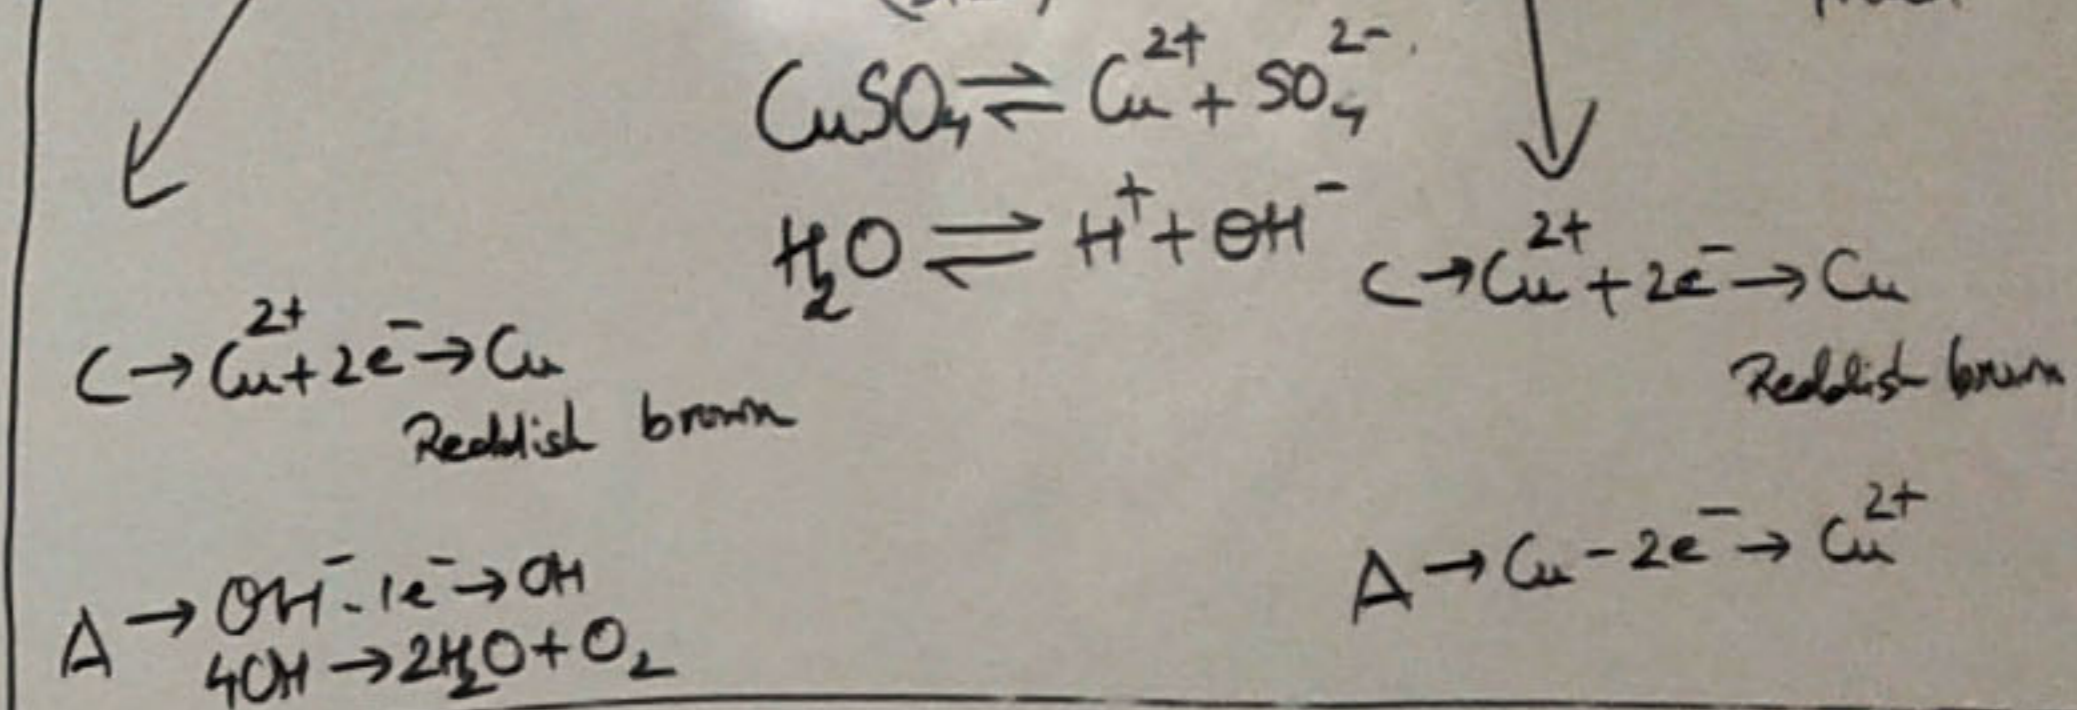 CuSO₄ ⇌ Cu²⁺ + SO₄²⁻
H₂O ⇌ H⁺ + OH⁻
C → Cu²⁺ + 2e⁻ → Cu
Reddish brown
A → OH⁻ - 1e⁻ → OH
4OH → 2H₂O + O₂
C → Cu²⁺ + 2e⁻ → Cu
Reddish brown
A → Cu - 2e⁻ → Cu²⁺